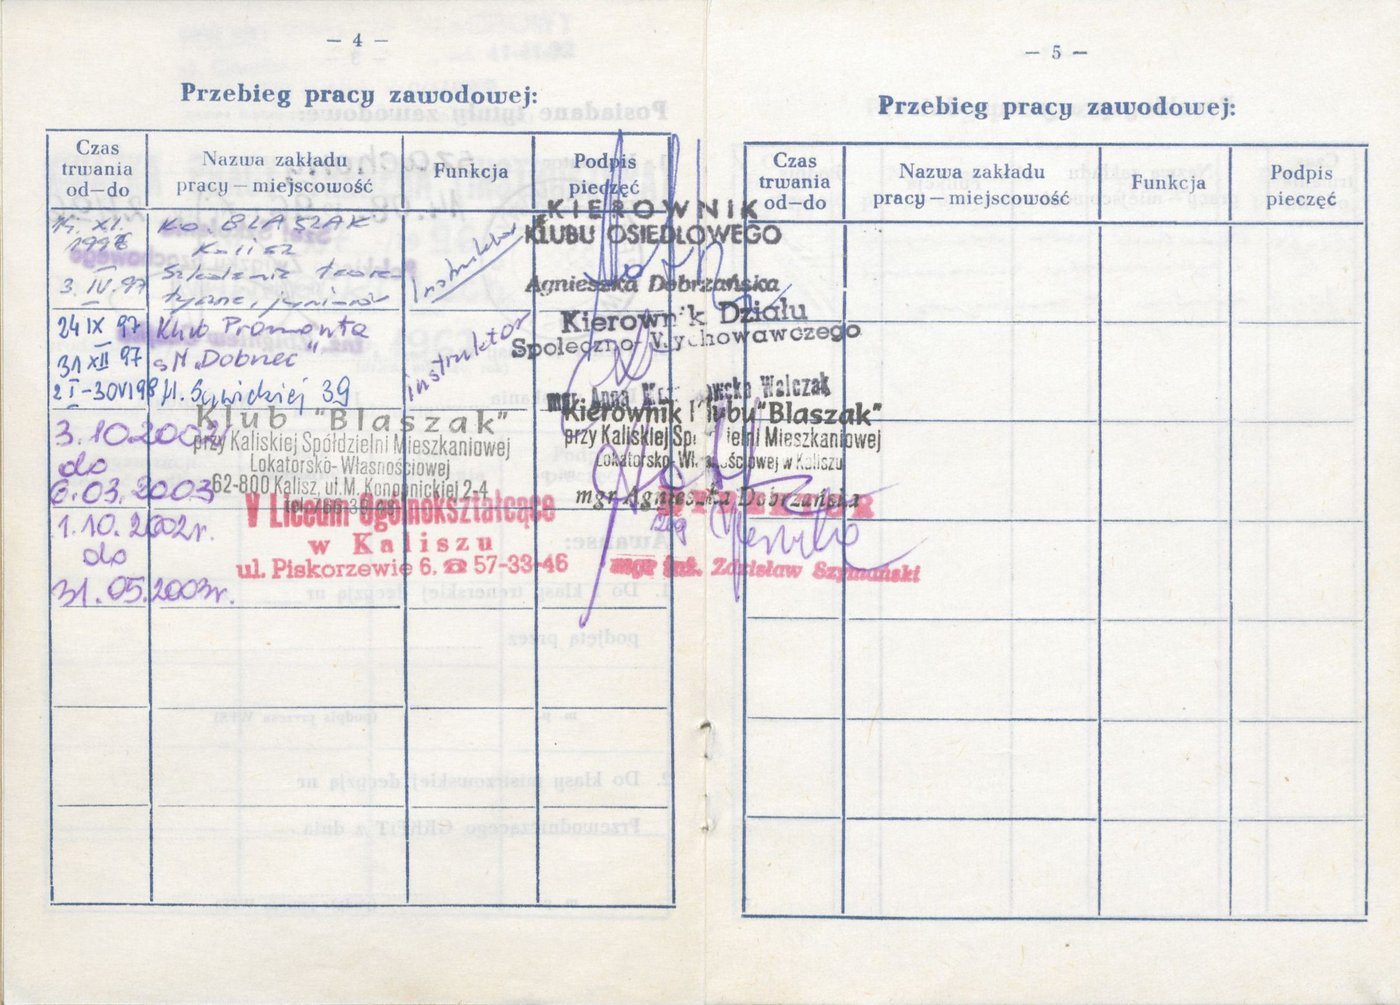 — 4 —
Przebieg pracy zawodowej:
Czas trwania od—do
Nazwa zakładu pracy—miejscowość
Funkcja
Podpis pieczęć
XI.
K.O. BŁASZAK
Kalisz
Szkolenie teore
3. IV. 97
tyczne,
Instruktor
KIEROWNIK
KLUBU OSIEDLOWEGO
Agnieszka Dobrzańska
24 IX 97
31 XII 97
Klub Promonta
SM. "Dobrzec"
instruktor
Kierownik Działu
Społeczno-Wychowawczego
mgr Anna Walczak
2 I - 30 VI 98
39
3.10.2002
do
6.03.2003
Klub "Blaszak"
przy Kaliskiej Spółdzielni Mieszkaniowej
Lokatorsko-Własnościowej
62-800 Kalisz, ul. M. Konopnickiej 2-4
tel.
Kierownik Klubu "Blaszak"
przy Kaliskiej Spółdzielni Mieszkaniowej
Lokatorsko-Własnościowej w Kaliszu
mgr Agnieszka Dobrzańska
1.10.2002r.
do
31.05.2003r.
V Liceum Ogólnokształcące
w Kaliszu
ul. Piskorzewie 6, ☎ 57-33-46
mgr inż. Zdzisław Szymański
— 5 —
Przebieg pracy zawodowej:
Czas trwania od—do
Nazwa zakładu pracy—miejscowość
Funkcja
Podpis pieczęć